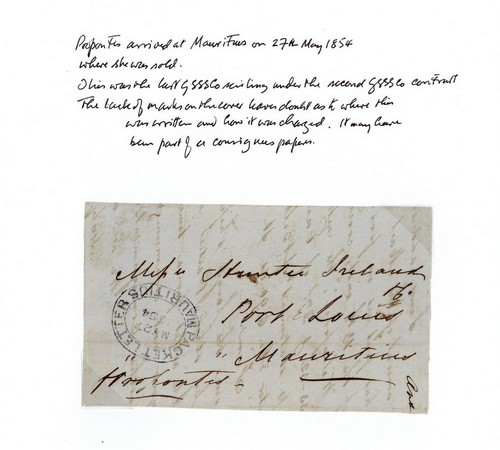 Propontis arrived at Mauritius on 27th May 1854
where she was sold.
This was the last GSSSCo sailing under the second GSSSCo contract
The lack of marks on the cover leaves doubt as to where this
was written and how it was charged. It may have
been part of a consignees papers.
Messrs Hunter Ireland
Port Louis
" " Mauritius
Propontis
PACKET LETTER
MAURITIUS
MY 27
54